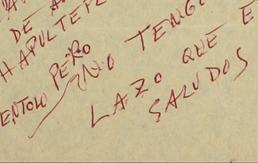 DE A
HAPULTEPE
ENTOLO PERO NO TENGO
LAZO QUE E
SALUDOS